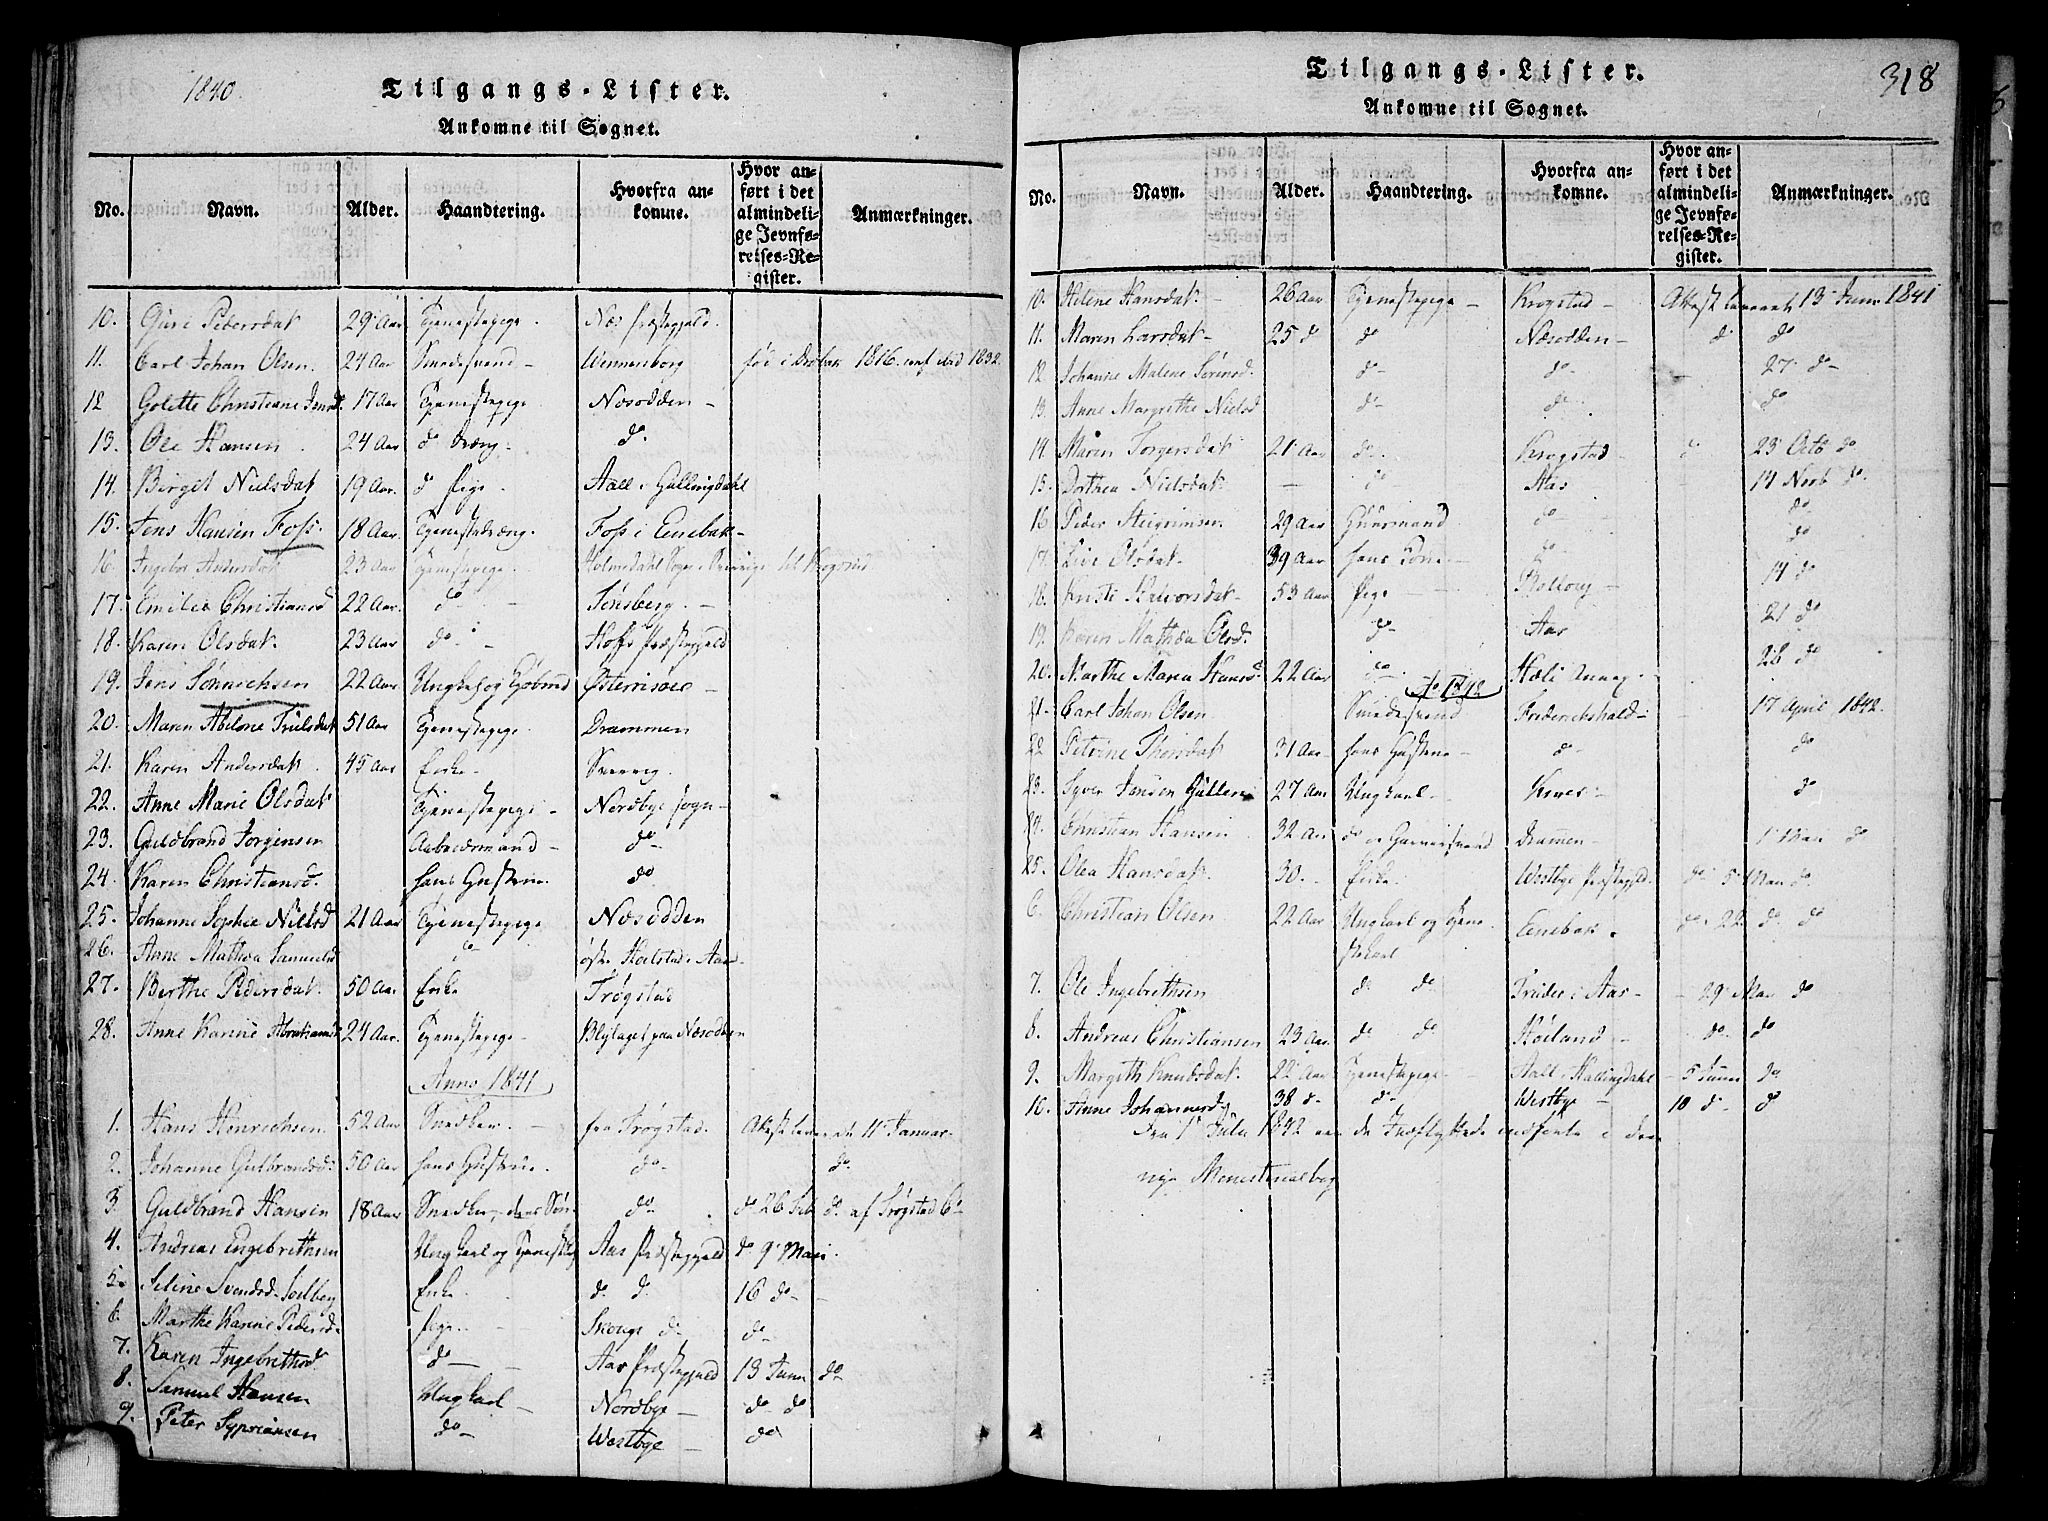 1840.
Tilgangs-Lister.
Ankomne til Sognet.
No. Navn. Alder. Haandtering. Hvorfra ankomne. Hvor anført i det almindelige Jevnførelses-Register. Anmærkninger.
10. Guri Pedersdat 29 Aar Tjenestepige. Næs Præstegjeld.
11. Carl Johan Olsen. 24 Aar Smedesvend Wennersborg fød i Drøbak 1816. conf. 1832.
12 Golette Christiane 17 Aar Tjenestepige Næsodden
13. Ole Hansen 24 Aar do dræng. do
14. Birgit Nielsdat 19 Aar. do Pige Aall i Hallingdahl
15. Jens Hansen Foss. 18 Aar Tjenestedræng. Foss i Enebak
16. Ingebor Andersdat 23 Aar Tjenestepige. Holmedahl Sogn i Sverrige
17. Emilie Christiansd 22 Aar do Tønsberg.
18. Karen Olsdat. 23 Aar do Hofs Præstegjeld
19. Jens Sønnichsen 22 Aar Ungkarl og Østerrisøer
20. Maren Abelone Truelsdat 51 Aar Tjenestepige. Drammen
21. Karen Andersdat. 45 Aar Enke. Sverrig.
22. Anne Marie Olsdat Tjenestepige Nordbye sogn
23. Guldbrand Jørgensen Arbeidsmand do
24. Karen Christiansd. hans Hustrue. do
25. Johanne Sophie Nielsd 21 Aar Tjenestepige Næsodden
26. Anne Mathea Samuelsd do Aas
27. Berthe Pedersdat. 50 Aar Enke Trøgstad
28. Anne Karine Abrahamsd 24 Aar. Tjenestepige Blylaget paa Næsodden
Anno 1841
1. Hans Henrichsen. 52 Aar Snedker. fra Trøgstad. Attest leveret 11 Januar.
2. Johanne Gulbrandsd. 50 Aar hans Hustrue. do do
3. Guldbrand Hansen 18 Aar Snedker, deres Søn do do 26 Feb do af Trøgstad
4. Andreas Engebrethsen Ungkarl og Aas Præstegjeld do 9 Mai.
5. Seline Svendsd. Solberg Enke. do do 16 do
6. Marthe Karine Pedersd. Pige. do do
7. Karen Ingebrethsd do Aas Præstegjeld 13 Juni do
8. Samuel Hansen Ungkarl Nordbye do do
9. Peter Sypriansen do Westbye do
318
Tilgangs-Lister.
Ankomne til Sognet.
No. Navn. Alder. Haandtering. Hvorfra ankomne. Hvor anført i det almindelige Jevnførelses-Register. Anmærkninger.
10. Helene Hansdat. 26 Aar Tjenestepige Krogstad Attest leveret 13 Juni 1841
11. Maren Larsdat 25 do do Næsodden do do
12 Johanne Malene Sørensd. do do 27 do
13. Anne Margrethe Nielsd do do do
14. Maren Torgersdat 21 Aar do Krogstad do 23 Octb do
15. Dorthea Nielsdat. do Aas 14 Novb do.
16 Peder Steigrimsen 29 Aar Huusmand do do
17. Live Olsdat. 39 Aar hans Kone do do
18. Kristi Halvorsdat 53 Aar Pige 14 do
19. Karen Mathea Olsd. do Aas 21 do
20. Marthe Maria Hansd. 22 Aar do 28 do
Ao 1842
21 Carl Johan Olsen Smedesvend Frederichshald 17 April 1842.
22 Petrine Thorsdat 31 Aar hans Hustrue do do
23. Syver Jensen 27 Aar Ungkarl do
24. Christian Hansen 32 Aar do og Garversvend Dramen 1 Mai do
25. Olea Hansdat. 30. Enke. Westbye Præstegjeld. do 5 Mai do
6. Christian Olsen 22 Aar Ungkarl og Tjene-
stekarl Enebak. do 22 do do
7. Ole Ingebrethsen do do i Aas 29 Mai do
8. Andreas Christiansen 23 Aar. do do Høiland do do
9. Margith Knudsdat. 22 Aar Tjenestepige Aall i Hallingdahl 5 Juni do
10. Anne Johannesd 38 do do Westbye 10 do do
Fra 1 Julii 1842 ere de Indflyttede indførte i den
nye Menesterialbog